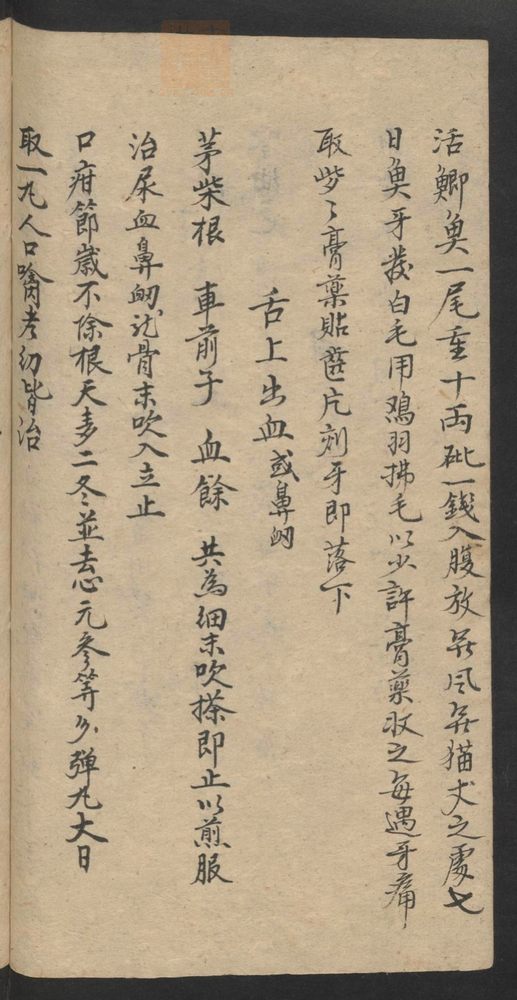 活鯽魚一尾重十両砒一錢入腹放無风無猫犬之處七
日魚牙發白毛用鷄羽拂毛以少許膏藥收之每遇牙痛
取些々膏藥貼片刻牙即落下
舌上出血或鼻衂
茅柴根 車前子 血餘 共為細末吹搽即止以煎服
治尿血鼻衂龍骨末吹入立止
口疳節歲不除根天麦二冬並去心元參等分弹九大日
取一九人口噙老幼皆治